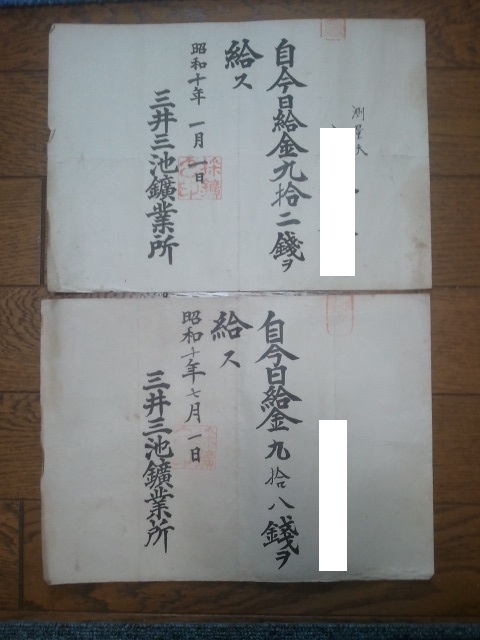 測量夫
自今日給金九拾二錢ヲ
給ス
昭和十年 一月 一日
三井三池鑛業所
自今日給金九拾八錢ヲ
給ス
昭和十年七月 一日
三井三池鑛業所